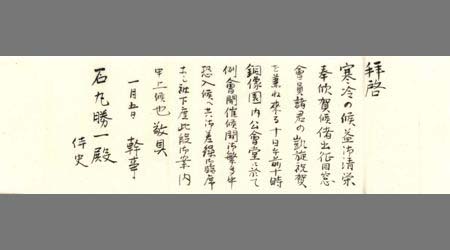 拝啓
寒冷の候益御清栄
奉欣賀候偖出征同窓
會員諸君の凱旋祝賀
を兼ね来る十日午前十時
銅像園内公會堂に於て
例會開催候間御繁多中
恐入候へ共御差繰御臨席
被下度此段御案内
申上候也 敬具
一月五日 幹事
石丸勝一殿
侍史